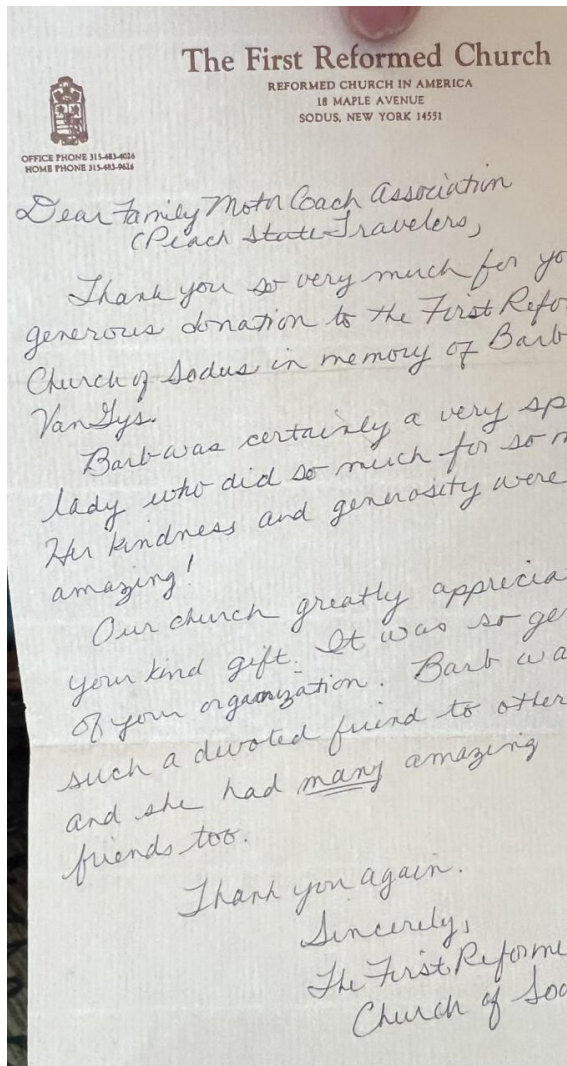 The First Reformed Church
REFORMED CHURCH IN AMERICA
18 MAPLE AVENUE
SODUS, NEW YORK 14551
OFFICE PHONE 315-483-4026
HOME PHONE 315-483-9626
Dear Family Motor Coach Association
(Peach State Travelers,
Thank you so very much for yo
generous donation to the First Refo
Church of Sodus in memory of Barb
VanGys.
Barb was certainly a very sp
lady who did so much for so m
Her kindness and generosity were
amazing!
Our church greatly apprecia
your kind gift. It was so ge
of your organization. Barb wa
such a devoted friend to other
and she had many amazing
friends too.
Thank you again.
Sincerely,
The First Reforme
Church of Sod